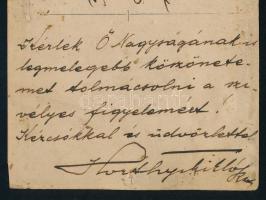 Kérlek Ő Nagyságának is
legmelegebb köszönete-
met tolmácsolni a szi-
vélyes figyelemért.
Kézcsókkal és üdvözlettel